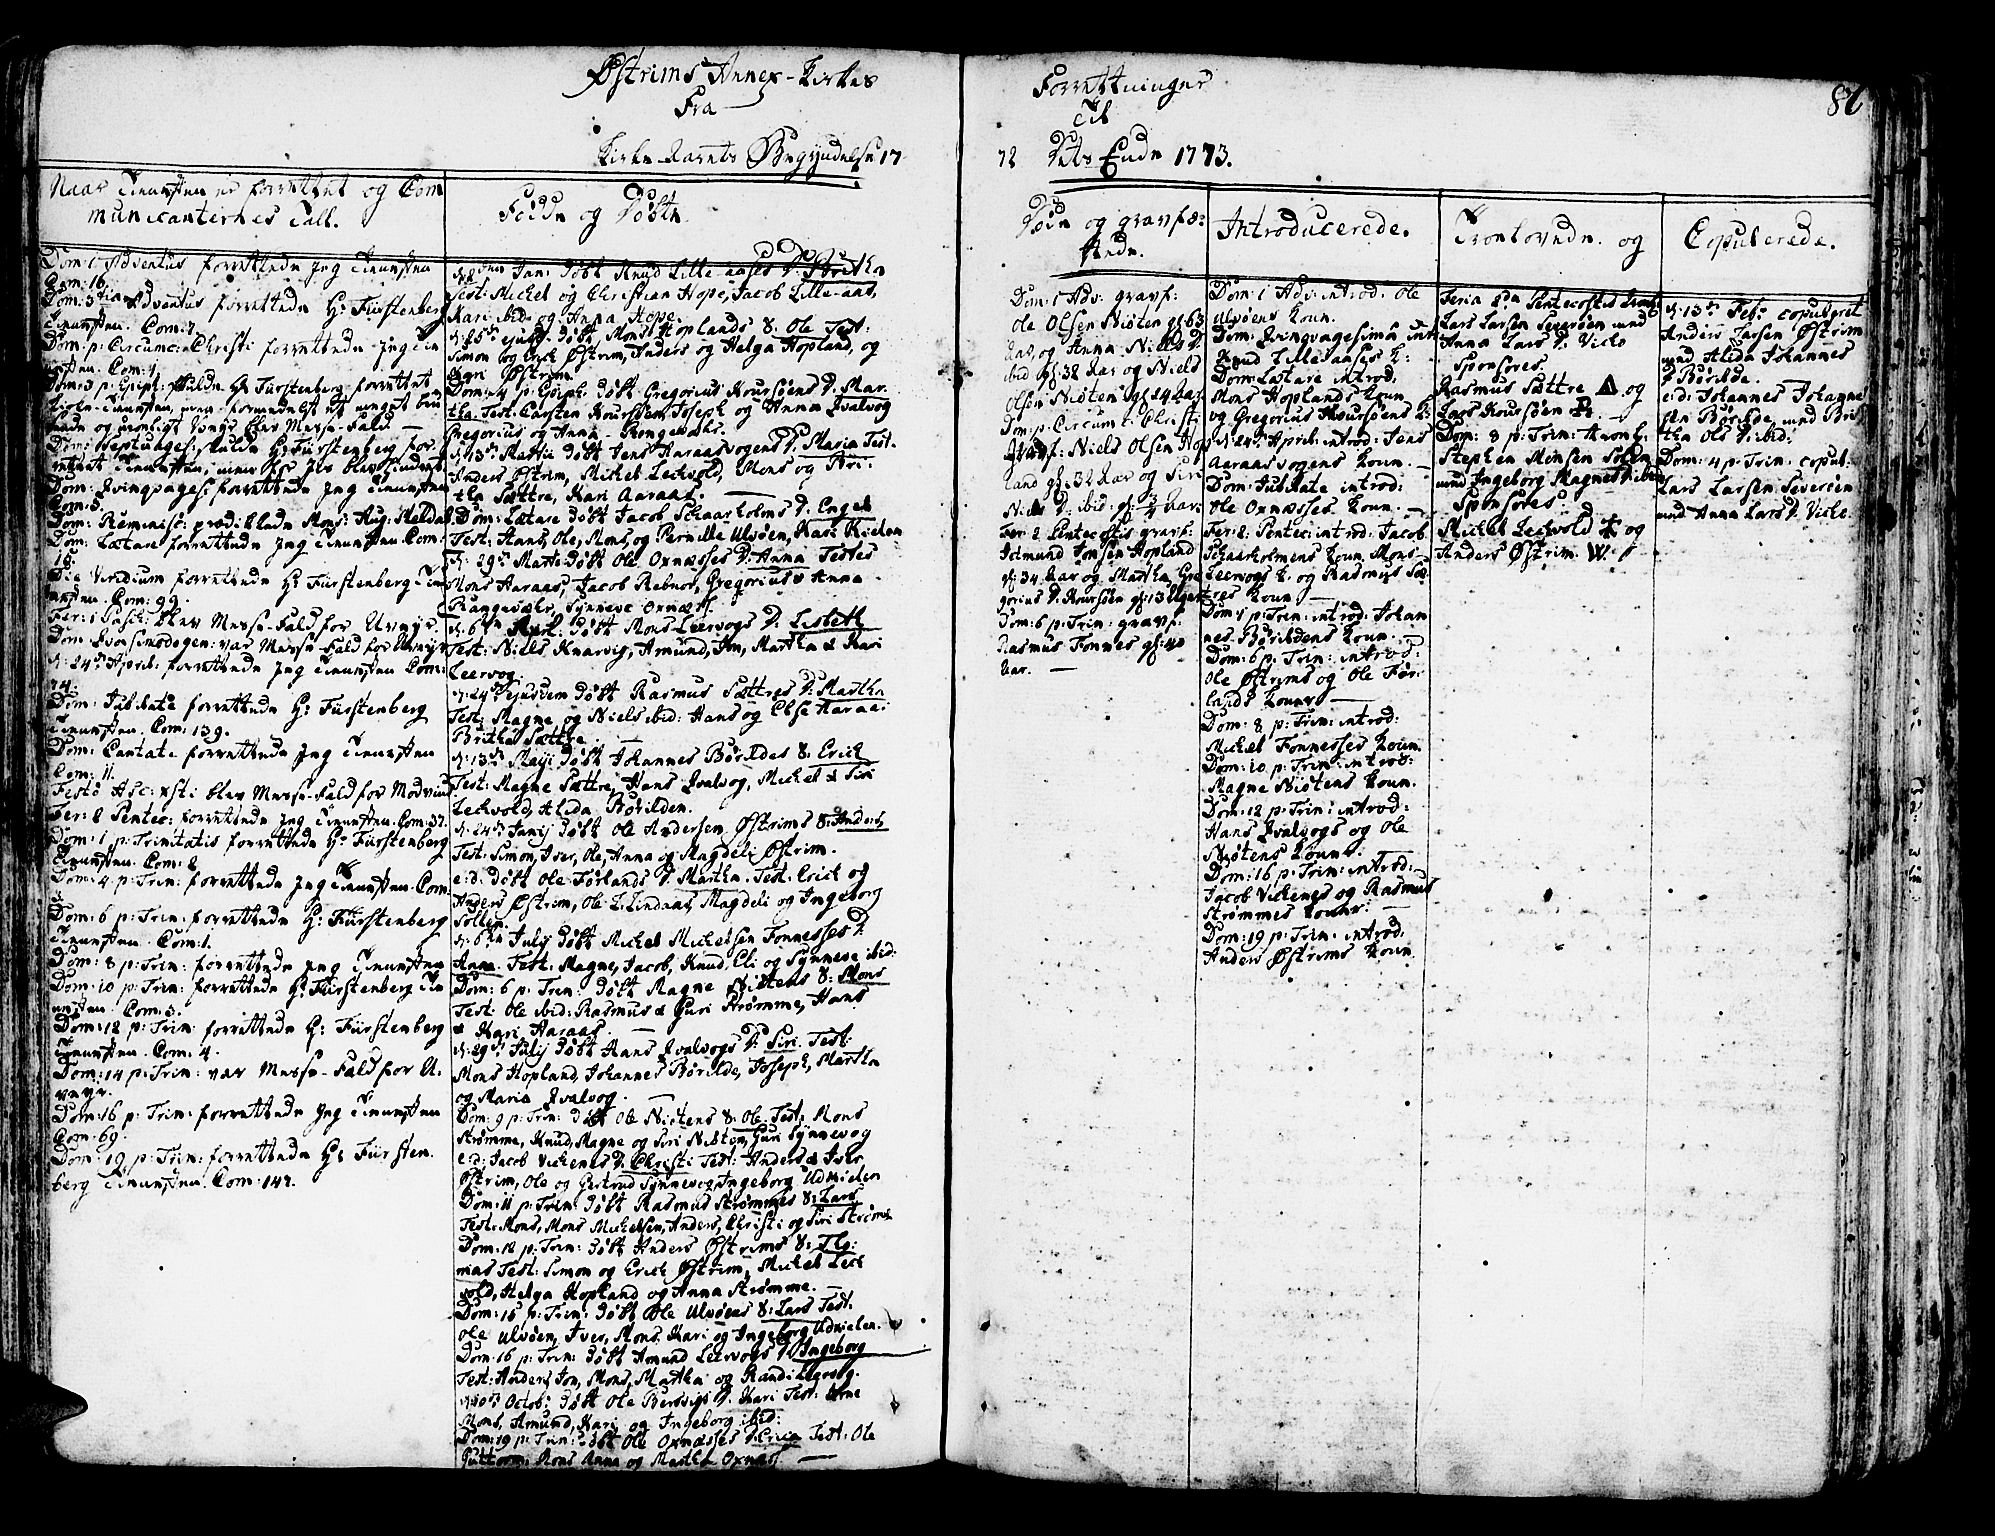 Østrims Annex-Kirkes
Fra
Kirke-Aarets Begyndelse 17
Naar Tienesten er forrettet og Com
municanternes Tall.
Dom: 1 Adventus forrettede Jeg Tienesten
Com: 16.
Dom: 3 Adventus forrettede Hr Fürstenberg
Tienesten. Com: 7.
Dom: p: Circumc: Christi forrettede Jeg Tie
nesten. Com: 4.
Dom: 3 p: Epiph: skulde Hr Fürstenberg forrettet
blev Messe-Fald.
Dom: Septuages: skulde Hr Fürstenberg for
rettet Tienesten, men
Dom: Qvinqvages: forrettede Jeg Tienesten
Com: 5.
Dom: Reminisc: prædikede Mons: Aug: Meldal
Dom: Lætare forrettede Jeg Tienesten Com:
18.
Die Viridium forrettede Hr Fürstenberg Tie
nesten. Com: 99.
Fer: 1 Pasch: blev Messe-Fald for Uveyr.
Dom: Qvasimodogen: var Messe-Fald for Uveyr
d: 24de April: forrettede Jeg Tienesten Com:
74.
Dom: Jubilate forrettede Hr Fürstenberg
Tienesten. Com: 139.
Dom: Cantate forrettede Jeg Tienesten
Com: 11.
Festo Asc: xsti blev Messe-Fald for Modvind
Fer: 2 Pentec: forrettede Jeg Tienesten. Com: 37.
Dom: 1 p: Trinitatis forrettede Hr Fürstenberg
Tienesten. Com: 2.
Dom: 4 p: Trin: forrettede Jeg Tienesten. Com:
Dom: 6 p: Trin: forrettede Hr Fürstenberg
Tienesten. Com: 1.
Dom: 8 p: Trin: forrettede Jeg Tienesten
Dom: 10 p: Trin: forrettede Hr Fürstenberg Tie
nesten. Com: 3.
Dom: 12 p: Trin: forrettede Hr Fürstenberg
Tienesten. Com: 4.
Dom: 14 p: Trin: var Messe-Fald for U-
veyr.
Dom: 16 p: Trin: forrettede Jeg Tienesten
Com: 69.
Dom: 19 p: Trin: forrettede Hr Fürsten-
berg Tienesten. Com: 147.
Fødde og Døbte
Jan: døbt Knud Lille-aases D: Britha
Test: Michel og Christian Hope, Jacob Lille-aas,
Kari ibid: og Anna Hope.
d: 25de ejusd: døbt Mons Hoplands S: Ole Test:
Simon og Erich Østrim, Anders og Helga Hopland, og
Kari Østrim.
Dom: 4 p: Epiph: døbt Gregorius Kourøens D: Mar-
tha Test: Carsten Kourøen, Joseph og Anna Qvalvog
Gregorius og Anna Rongevæhr.
d: 13de Martii døbt Jens Aaraasvogens D: Maria Test:
Anders Østrim, Michel Leckvold, Mons og Bri-
tha Sættre, Kari Aaraas.
Dom: Lætare døbt Jacob Schaarholms D: Engel
Test: Hans, Ole, Mons og Pernille Ulvøen, Kari
d: 29de Marti døbt Ole Oxnæsses D: Anna Testes
Mons Haraas, Jacob Rebnor, Gregorius & Anna
Rangevæhr, Synneve Oxnæss.
d: 6te April: døbt Mons Leervogs D: Lisbeth
Test: Niels Knarvig, Amund, Jon, Martha & Kari
Leervog.
d: 24de ejusdem døbt Rasmus Sættres D: Martha
Test: Magne og Niels ibid: Hans og Else Haraas
Britha Sættre.
d: 13de Maji døbt Johannes Børildes S: Erich
Test: Magne Sættre, Hans Qvalvog, Michel & Siri
Leckvold, Alida Børilden.
d: 24de Junij døbt Ole Andersen Østrims S: Anders
Test: Simon, Iver, Ole, Anna og Magdeli Østrim.
e:d: døbt Ole Førlands D: Martha. Test: Erich og
Anders Østrim, Ole L. Lindaas, Magdeli og Ingeborg
Sollen.
d: 6te July døbt Michel Michelsen Fonnesses D:
Anna. Test: Magne, Jacob, Knud, Eli og Synneve ibid:
Dom: 6 p: Trin: døbt Magne Niøtens S: Mons
Test: Ole ibid: Rasmus & Guri Strømme, Hans
& Kari Haraas.
d: 29de July døbt Hans Qvalvogs D: Siri. Test:
Mons Hopland, Johannes Børilde, Joseph, Martha
og Maria Qvalvog.
Dom: 9 p: Trin: døbt Ole Niøtens S: Ole. Test: Mons
Strømme, Knud, Magne og Siri Niøten, Guri Synnevog
e:d: Jacob Vickenes D: Christi Test: Anders & Iver
Østrim, Ole og Gertrud Synnevog, Ingeborg Udkielen
Dom: 11 p: Trin: døbt Rasmus Strømmes S: Lars
Test: Mons, Mons Michelsen, Anders, Christi og Siri Strømme
Dom: 12 p: Trin: døbt Anders Østrims S: Tho-
mas Test: Simon og Erich Østrim, Michel Leck
vold, Helga Hopland og Anna Strømme.
Dom: 15 p: Trin: døbt Ole Ulvøens S: Lars Test:
Ole Ulvøen, Iver, Mons, Kari og Ingeborg Udkielen.
Dom: 16 p: Trin: døbt Amund Leervogs D: Ingeborg
Test: Anders, Jon, Mons, Martha og Randi Leervog.
Octob: døbt Ole Bersvigs D: Kari Test: Arne
Mons, Amund, Kari og Ingeborg ibid:
Dom: 19 p: Trin: døbt Ole Oxnæsses D: Test: Ole
Guttorm, Mons, Anna og Martha Oxnæs.
Forrettninger
Til
72 Dets Ende 1773.
87
Døde og gravfæ-
stede.
Dom: 1 Adv: gravf:
Ole Olsen Niøten gl: 63
Aar, og Anna Niels D:
ibid gl: 38 Aar og Niels
Olsen Niøten gl: 14 Aar
Dom: p: Circumc: Christi
gravf: Niels Olsen Hop
land gl: 32 Aar og Siri
Niels D: ibid: gl: 3/4 Aar.
Fer: 2 Pentecostis gravf:
Jetmund Jonsen Hopland
gl: 34 Aar og Martha Gre
gorius D: Kourøen gl: 13 Uger
Dom: 6 p: Trin: gravf:
Rasmus Fonnes gl: 40
Aar.
Introducerede.
Dom: 1 Adv: introd: Ole
Ulvøens Koun.
Dom: Qvinqvagesima intr:
Knud Lilleaases K:
Dom: Lætare introd:
Mons Hoplands Koun
og Gregorius Kourøens K:
d: 24de April: introd: Jens
Aaraasvogens Koun.
Dom: Jubilate introd:
Ole Oxnæsses Koun.
Fer: 2 Pentec: introd: Jacob
Schaarholmens Koun, Mons
Leervogs K: og Rasmus Sæ
tres Koun
Dom: 1 p: Trin: introd: Johan
nes Børildens Koun.
Dom: 6 p: Trin: introd:
Ole Østrims og Ole Før-
lands Koner
Dom: 8 p: Trin: introd:
Michel Fonnesses Koun.
Dom: 10 p: Trin: introd:
Magne Niøtens Koun.
Dom: 12 p: Trin: introd:
Hans Qvalvogs og Ole
Niøtens Koner.
Dom: 16 p: Trin: introd:
Jacob Vickenes og Rasmus
Strømmes Koner.
Dom: 19 p: Trin: introd:
Anders Østrims Koun.
Troelovede og
Feria 2da Pentecostes
Lars Larsen Severøen med
Anna Lars D: Vicke
Sponsores.
Rasmus Sættre og
Lars Kourøen
Dom: 8 p: Trin:
Stephen Monsen Solem
med Ingeborg Magnes D: ibid:
Sponsores.
Michel Leckvold og
Anders Østrim. W.
Copulerede.
d: 13de Febr: copuleret
Anders Larsen Østrim
med Alida Johannes
D: Børilde.
e:d: Johannes Johanne
sen Børilde med Bri
tha Ols D: ibid:
Dom: 4 p: Trin: copul:
Lars Larsen Severøen
med Anna Lars D: Vicke.